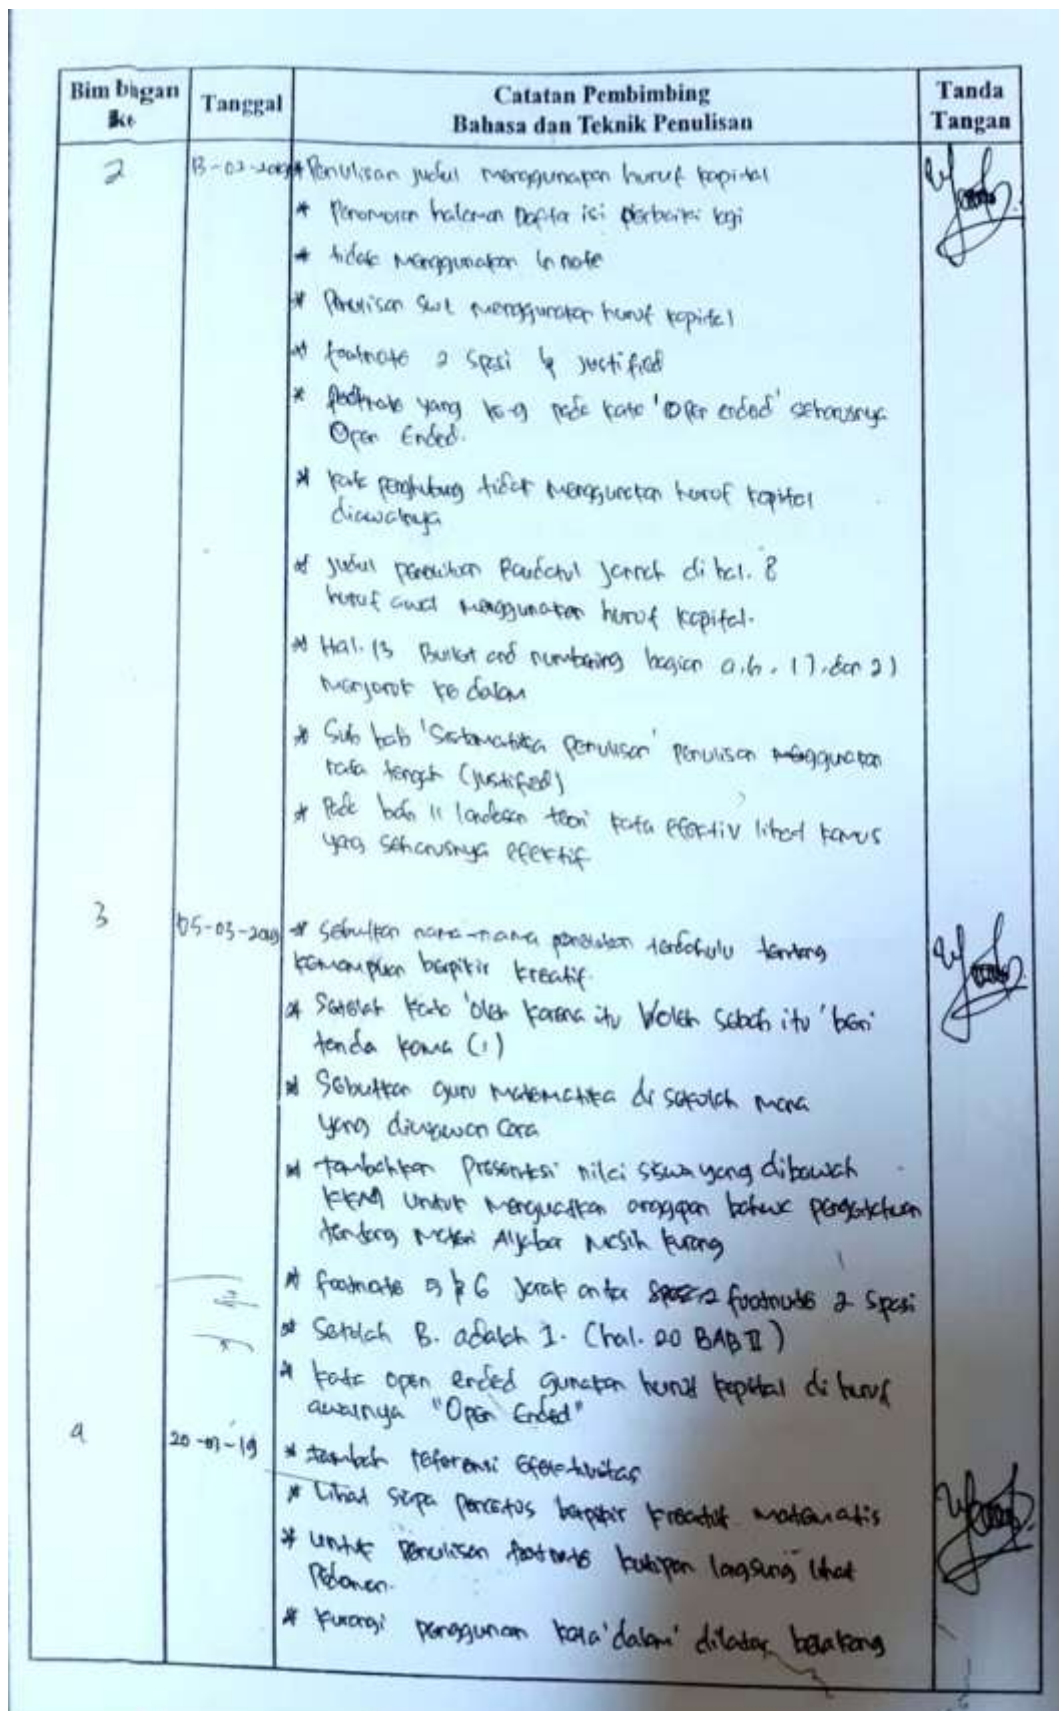 Bimbingan Tanggal Catatan Pembimbing Tanda
ke Bahasa dan Teknik Penulisan Tangan
2 13-02-2019 * Penulisan judul menggunakan huruf kapital
* Penomoran halaman Daftar isi perbaiki lagi
* tidak menggunakan in note
* Penulisan menggunakan huruf kapital
* footnote 2 spasi & justified
* footnote yang ke-9 pada kata 'Open ended' seharusnya
Open Ended.
* kata penghubung tidak menggunakan huruf kapital
diawalnya
* judul penelitian Raudatul Jannah di hal. 8
huruf awal menggunakan huruf kapital.
* Hal. 13 Bullet and numbering bagian a, b, 1), dan 2)
menjorok ke dalam
* Sub bab 'Sistematika penulisan' penulisan menggunakan
rata tengah (justified)
* Pada bab II landasan teori kata efektiv lihat kamus
yag seharusnya efektif
3 05-03-2019 * Sebutkan nama-nama penelitian terdahulu tentang
kemampuan berpikir kreatif.
* Setelah kata 'oleh karena itu oleh sebab itu' beri
tanda koma (,)
* Sebutkan guru matematika di sekolah mana
yang diwawan cara
* tambahkan Presentasi nilai siswa yang dibawah
KKM untuk menguatkan anggapan bahwa pengetahuan
tentang materi Aljabar masih kurang
* footnote 5 & 6 jarak antar footnote 2 spasi
* Setelah B. adalah 1. (hal. 20 BAB II)
* kata open ended gunakan huruf kapital di huruf
awalnya "Open Ended"
4 * tambah referensi Efektivitas
* Lihat siapa pencetus berpikir kreatif matematis
* untuk Penulisan footnote kutipan langsung lihat
Pedoman.
* kurangi penggunaan kata 'dalam' dilatar belakang